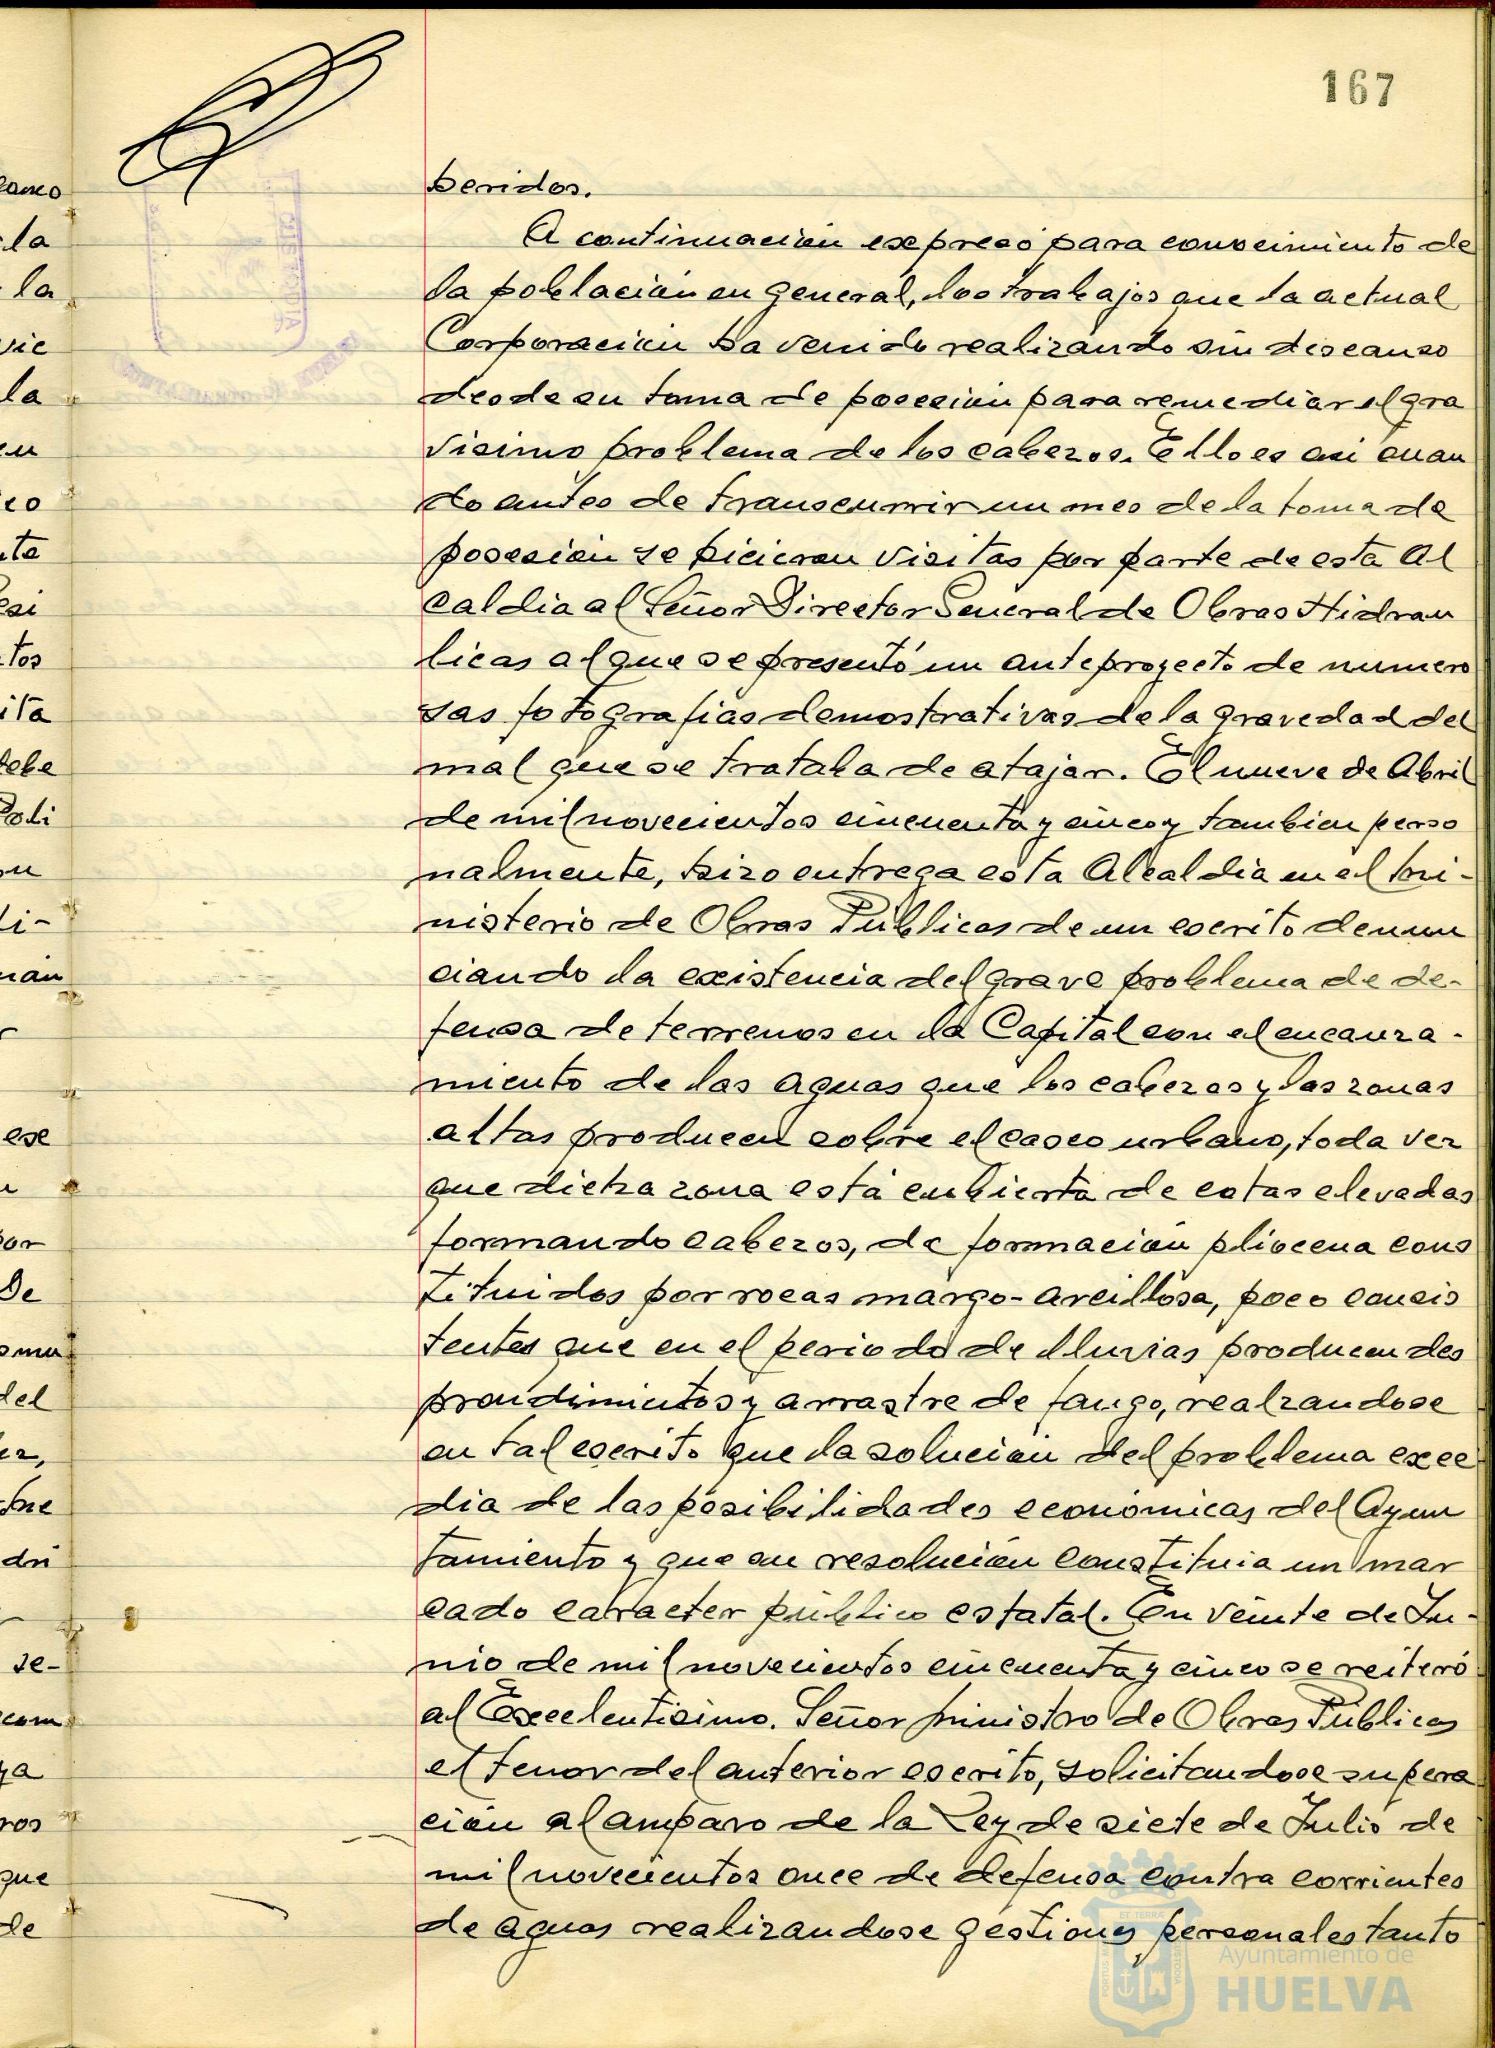 167
beridos.
A continuación expresó para conocimiento de
la población en general, los trabajos que la actual
Corporación ha venido realizando sin descanso
desde su toma de posesión para remediar el gra
visimo problema de los cabezos. Ello es asi cuan
do antes de transcurrir un mes de la toma de
posesión se hicieron visitas por parte de esta Al
caldia al Señor Director General de Obras Hidrau
licas al que se presentó un anteproyecto de numero
sas fotografias demostrativas de la gravedad del
mal que se trataba de atajar. El nueve de Abril
de mil novecientos cincuenta y cinco y tambien perso
nalmente, hizo entrega esta Alcaldia en el Mi-
nisterio de Obras Públicas de un escrito denun
ciando la existencia del grave problema de de-
fensa de terrenos en la Capital con el encauza-
miento de las aguas que los cabezos y las zonas
altas producen sobre el casco urbano, toda vez
que dicha zona está cubierta de cotas elevadas
formando cabezos, de formación pliocena cons
tituidos por rocas margo-arcillosa, poco consis
tentes que en el periodo de lluvias producen des
prendimientos y arrastre de fango, realzandose
en tal escrito que la solución del problema exce
dia de las posibilidades económicas del Ayun
tamiento y que su resolución constituia un mar
cado caracter público estatal. En veinte de Ju-
nio de mil novecientos cincuenta y cinco se reiteró
al Excelentisimo. Señor Ministro de Obras Públicas
el tenor del anterior escrito, solicitandose supera
ción al amparo de la Ley de siete de Julio de
mil novecientos once de defensa contra corrientes
de aguas realizandose gestiones personales tanto
Ayuntamiento de
HUELVA